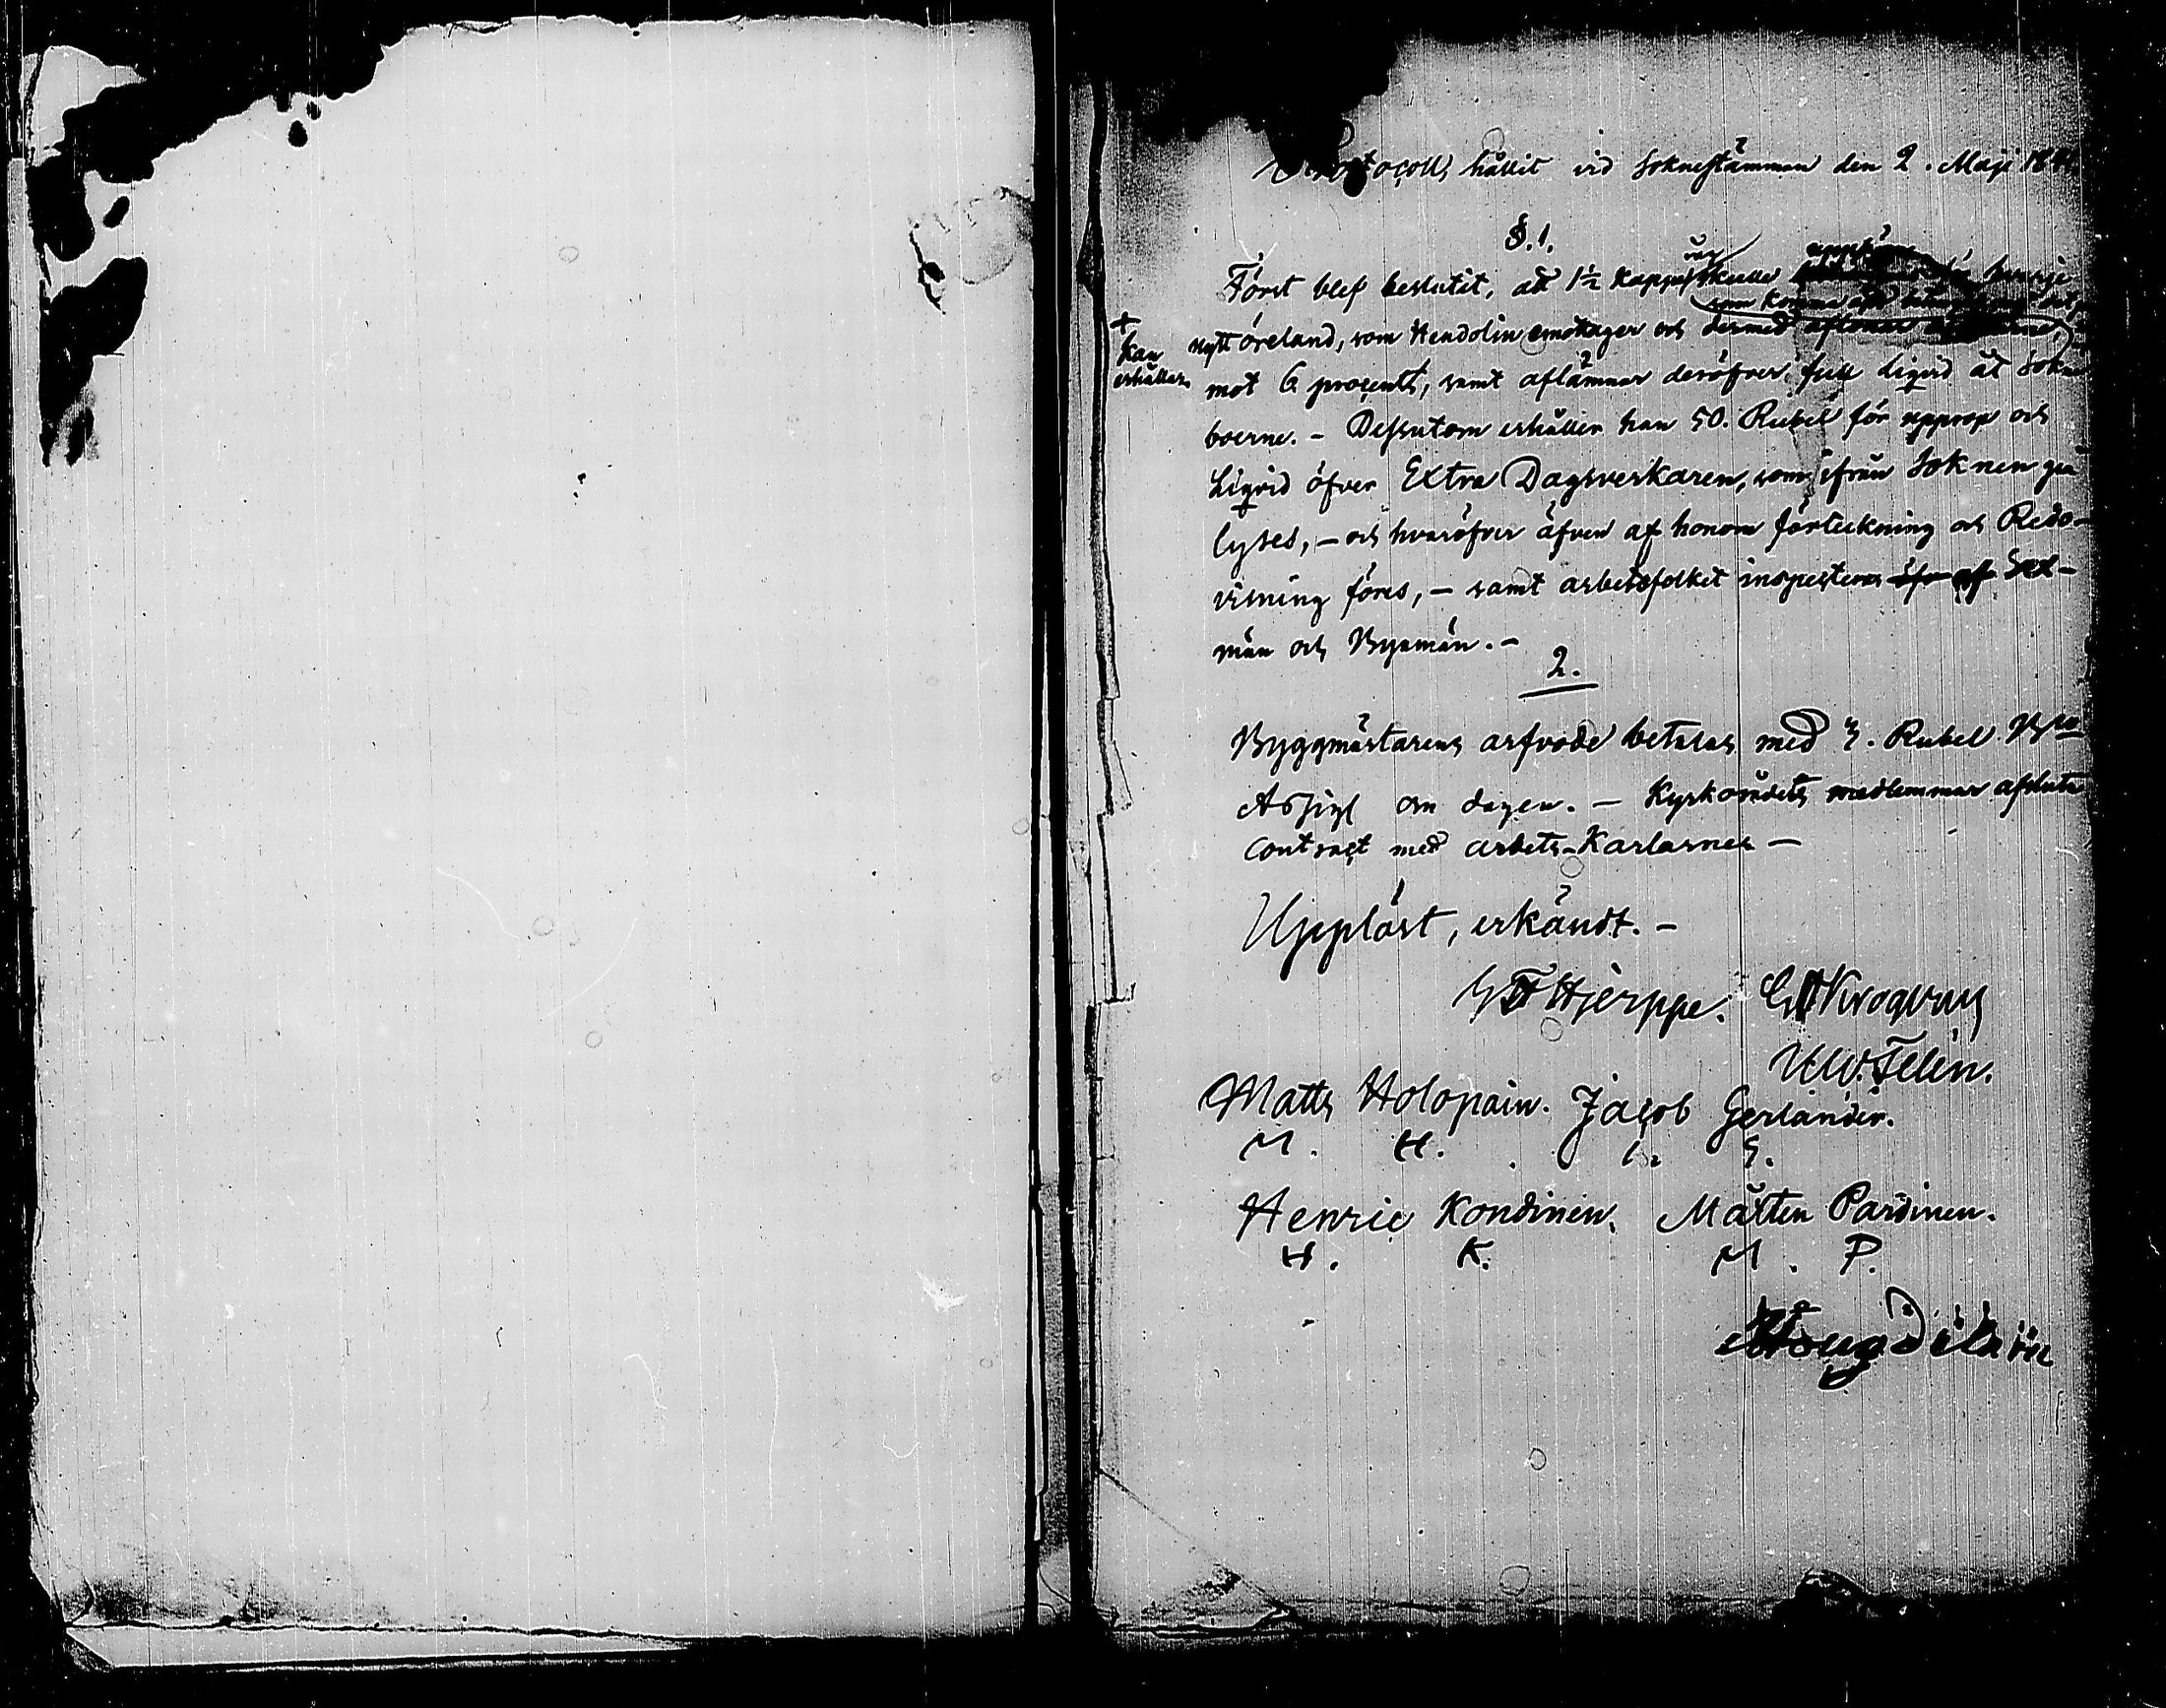 Protocoll, hållit vid Soknestämman den 2. Maji
§.1.
Först blef beslutit, att 1½ Kappe skulle
nytt öreland, som Hendolin emottager och dermed
+
kan
erhållas
mot 6 procent, samt aflämnar deröfver full Liqvid åt Sokne
boerne. - Dessutom erhåller han 50. Rubel för upprop och
Liqvid öfver Extra Dagsverkaren, som ifrån Soknen gå
lyses, - och hvaröfver äfven af honom förteckning och Redo-
visning föres, - samt arbetsfolket inspecteras af Sex-
män och Byamän. -
2.
Byggmästarens arfvode betalas med 3. Rubel B:co
Assign om dagen. - Kyrkorådets medlemmar afsluta
Contract med arbets-Karlarnes -
Uppläst, erkändt. -
Hjerppe. Krogerus
Felin.
Matts Holopain. Jacob Gerlander.
M. H. G.
Henric Kondinen. Måtten Pardinen.
H. K. M. P.